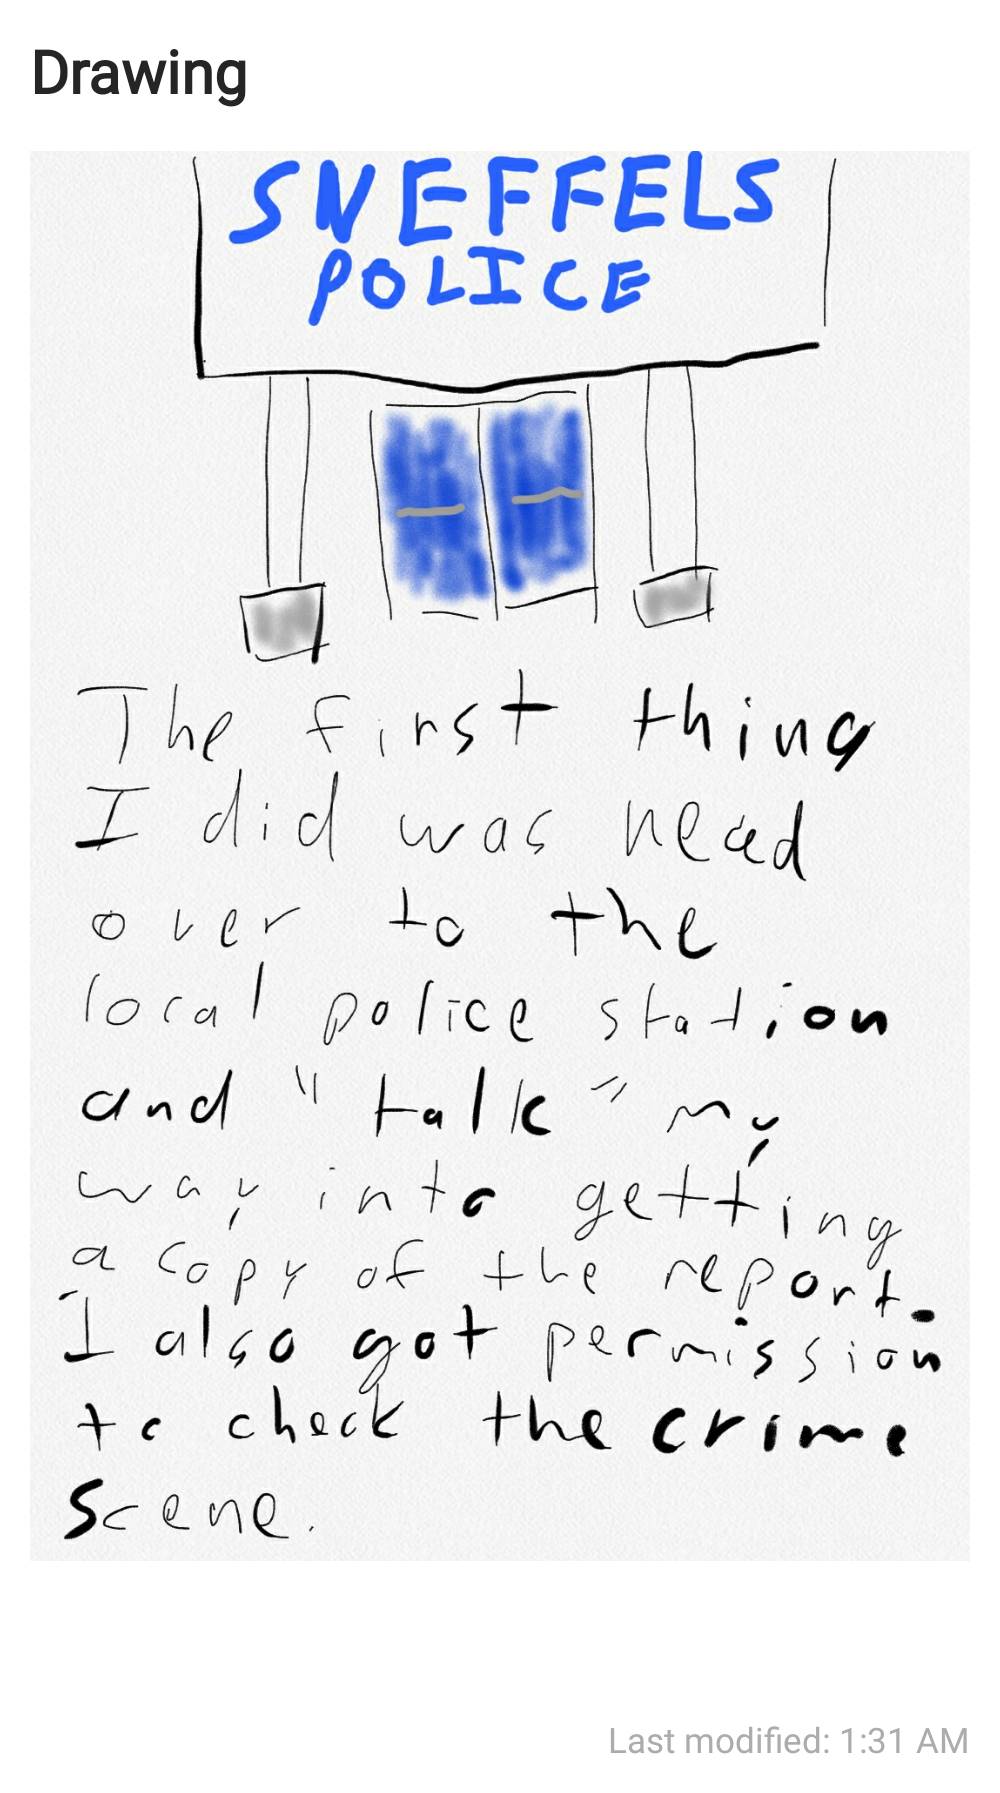 Drawing
SNEFFELS
POLICE
The first thing
I did was head
over to the
local police station
and "talk" my
way into getting
a copy of the report.
I also got permission
to check the crime
scene.
Last modified: 1:31 AM